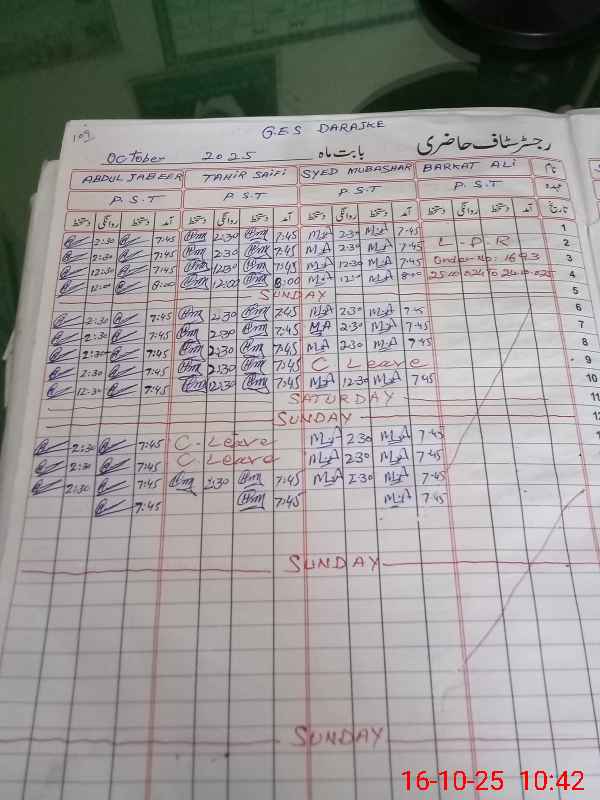 109
G.E.S DARAJKE
October 2025 بابت ماہ رجسٹر سٹاف حاضری
ABDUL JABEER TAHIR SAIFI SYED MUBASHAR BARKAT ALI نام
P.S.T P.S.T P.S.T P.S.T عہدہ
دستخط روانگی دستخط آمد دستخط روانگی دستخط آمد دستخط روانگی دستخط آمد دستخط روانگی دستخط آمد تاریخ
2:30 7:45 2:30 7:45 M.A 2:30 M.A 7:45 1
2:30 7:45 2:30 7:45 M.A 2:30 M.A 7:45 L-P-R 2
12:30 7:45 12:30 7:45 M.A 12:30 M.A 7:45 Order No: 1693 3
12:00 8:00 12:00 8:00 M.A 12:30 M.A 8:00 4
SUNDAY 5
2:30 7:45 2:30 7:45 M.A 2:30 M.A 7:45 6
2:30 7:45 2:30 7:45 M.A 2:30 M.A 7:45 7
2:30 7:45 2:30 7:45 M.A 2:30 M.A 7:45 8
2:30 7:45 2:30 7:45 C Leave 9
12:30 7:45 12:30 7:45 M.A 12:30 M.A 7:45 10
SATURDAY 11
SUNDAY 12
2:30 7:45 C-Leave M.A 2:30 M.A 7:45
2:30 7:45 C-Leave M.A 2:30 M.A 7:45
2:30 7:45 2:30 7:45 M.A 2:30 M.A 7:45
7:45 7:45 M.A 7:45
SUNDAY
SUNDAY
16-10-25 10:42